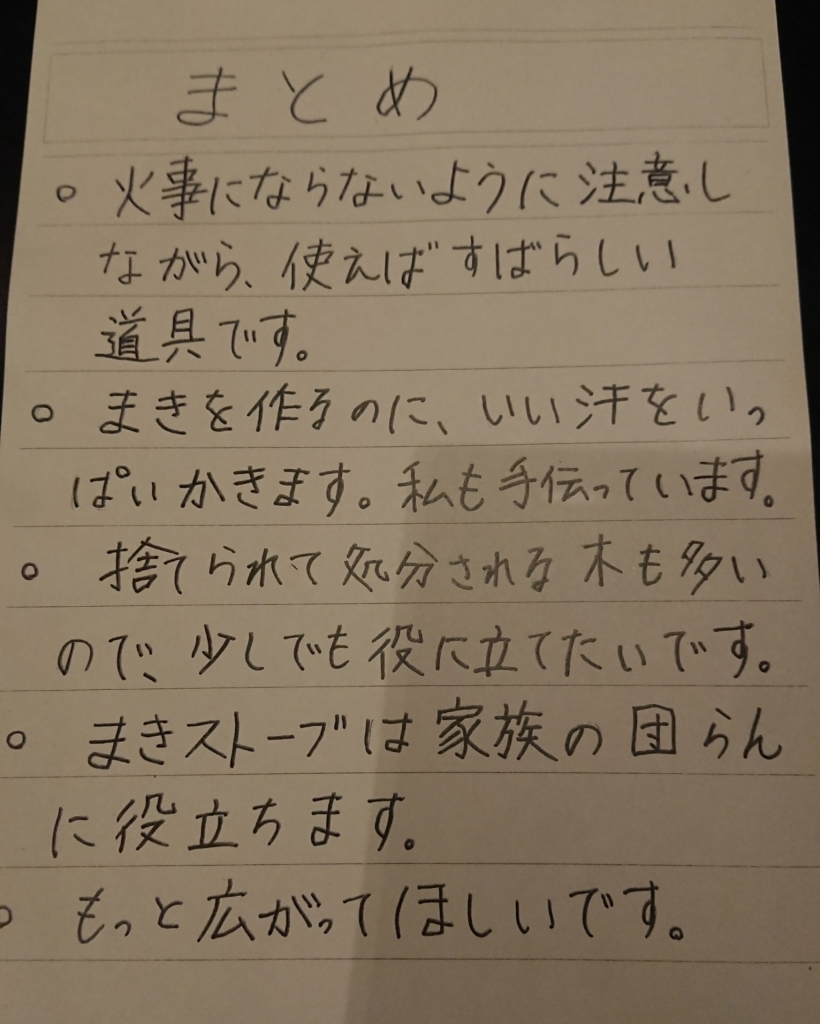 まとめ
。火事にならないように注意し
ながら、使えばすばらしい
道具です。
。まきを作るのに、いい汗をいっ
ぱいかきます。私も手伝っています。
。捨てられて処分される木も多い
ので、少しでも役に立てたいです。
。まきストーブは家族の団らん
に役立ちます。
。もっと広がってほしいです。